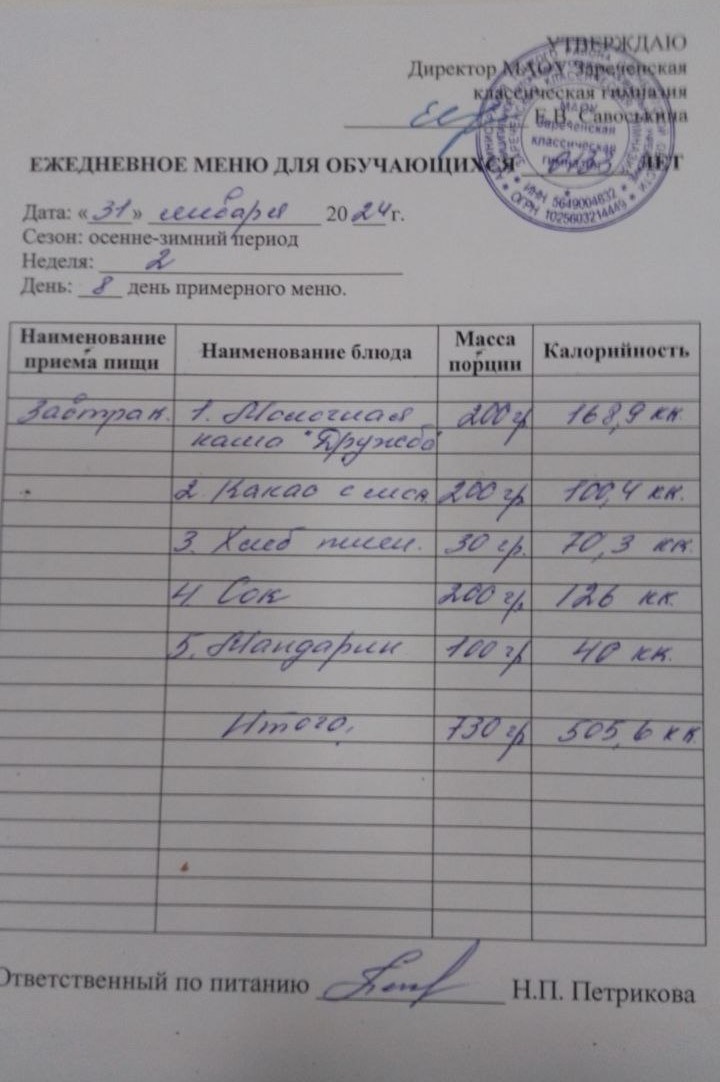 УТВЕРЖДАЮ
Директор МАОУ Зареченская
классическая гимназия
Е.В. Савоськина
МАОУ
Зареченская
классическая
гимназия
ИНН 5649004832
ОГРН 1025603214449
ЕЖЕДНЕВНОЕ МЕНЮ ДЛЯ ОБУЧАЮЩИХСЯ ЛЕТ
Дата: «31» января 2024 г.
Сезон: осенне-зимний период
Неделя: 2
День: 8 день примерного меню.
Наименование приема пищи Наименование блюда Масса порции Калорийность
Завтрак. 1. Молочная 200 гр 168,9 кк.
каша "Дружба"
2. Какао с мол. 200 гр 100,4 кк.
3. Хлеб пшен. 30 гр. 70,3 кк.
4. Сок 200 гр 126 кк.
5. Мандарин 100 гр 40 кк.
Итого. 730 гр 505,6 кк
Ответственный по питанию Н.П. Петрикова